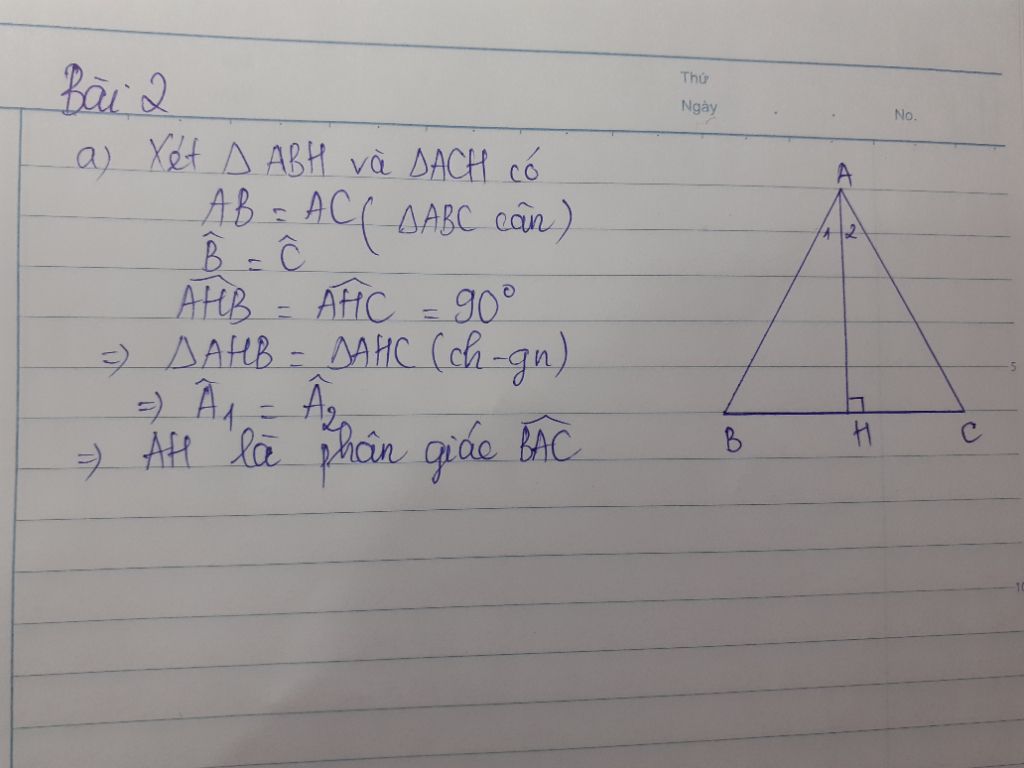 Bài 2
Thứ
Ngày
No.
a) Xét Δ ABH và ΔACH có
AB = AC ( ΔABC cân)
B̂ = Ĉ
A͡HB = A͡HC = 90°
=) ΔAHB = ΔAHC (ch-gn)
=) Â1 = Â2
=) AH là phân giác B͡AC
A
1 2
B H C
5
10